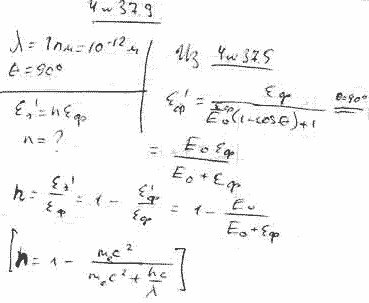 4и379
λ = 1пм = 10⁻¹² м
θ = 90°
ε₂' = nεф
n = ?
Из 4и375
εф' = εф / (εф/E₀ (1 - cosθ) + 1) θ=90° =
= E₀εф / (E₀ + εф)
n = ε₂'/εф = 1 - εф'/εф = 1 - E₀/(E₀ + εф)
[n = 1 - m₀c² / (m₀c² + hc/λ)]